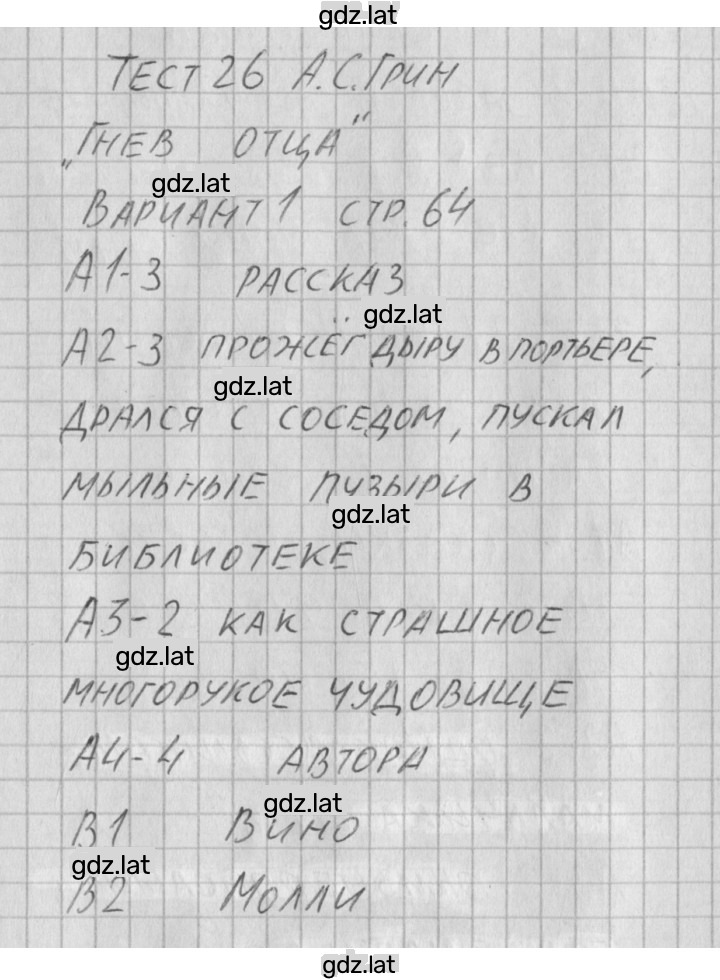 gdz.lat
Тест 26 А.С.Грин
„Гнев отца"
gdz.lat
Вариант 1 стр. 64
А1-3 рассказ
gdz.lat
А2-3 прожёг дыру в портьере,
gdz.lat
дрался с соседом, пускал
мыльные пузыри в
gdz.lat
библиотеке
А3-2 как страшное
gdz.lat
многорукое чудовище
А4-4 автора
gdz.lat
В1 Вино
gdz.lat
В2 Молли
gdz.lat